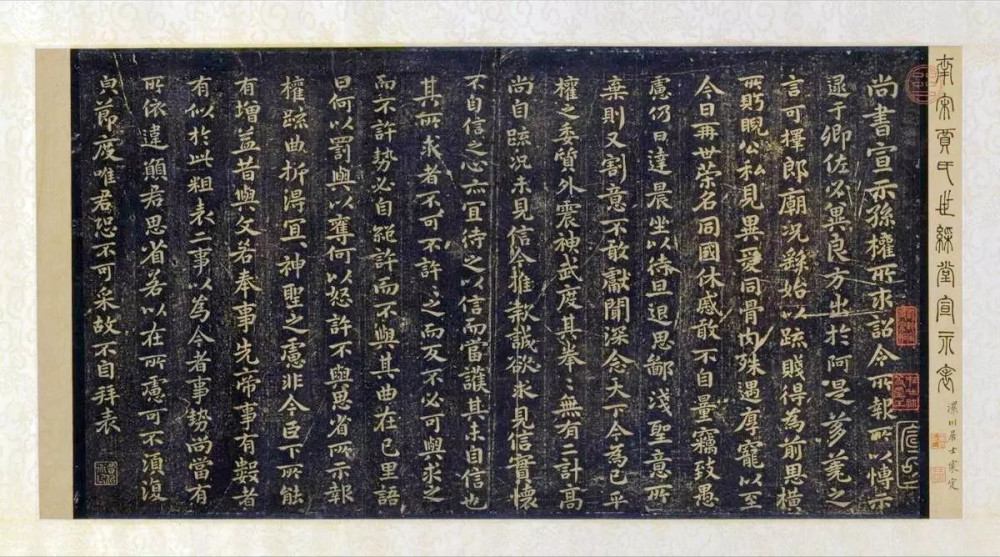 南宋賈氏世綵堂宣示表
尚書宣示孫權所求詔令所報所以博示
逮于卿佐必冀良方出於阿是芻蕘之
言可擇郎廟況繇始以疏賤得為前恩橫
所眄睨公私見異愛同骨肉殊遇厚寵以至
今日再世榮名同國休慼敢不自量竊致愚
慮仍日達晨坐以待旦退思鄙淺聖意所
棄則又割意不敢獻聞深念天下今為已平
權之委質外震神武度其拳〻無有二計高
尚自疏況未見信今推款誠欲求見信實懷
不自信之心亦宜待之以信而當護其未自信也
其所求者不可不許〻之而反不必可與求之
而不許勢必自絕許而不與其曲在己里語
曰何以罰與以奪何以怒許不與思省所示報
權疏曲折得宜〻神聖之慮非今臣下所能
有增益昔與文若奉事先帝事有數者
有似於此粗表二事以為今者事勢尚當有
所依違願君思省若以在所慮可不須復
皃節度唯君恐不可采故不自拜表